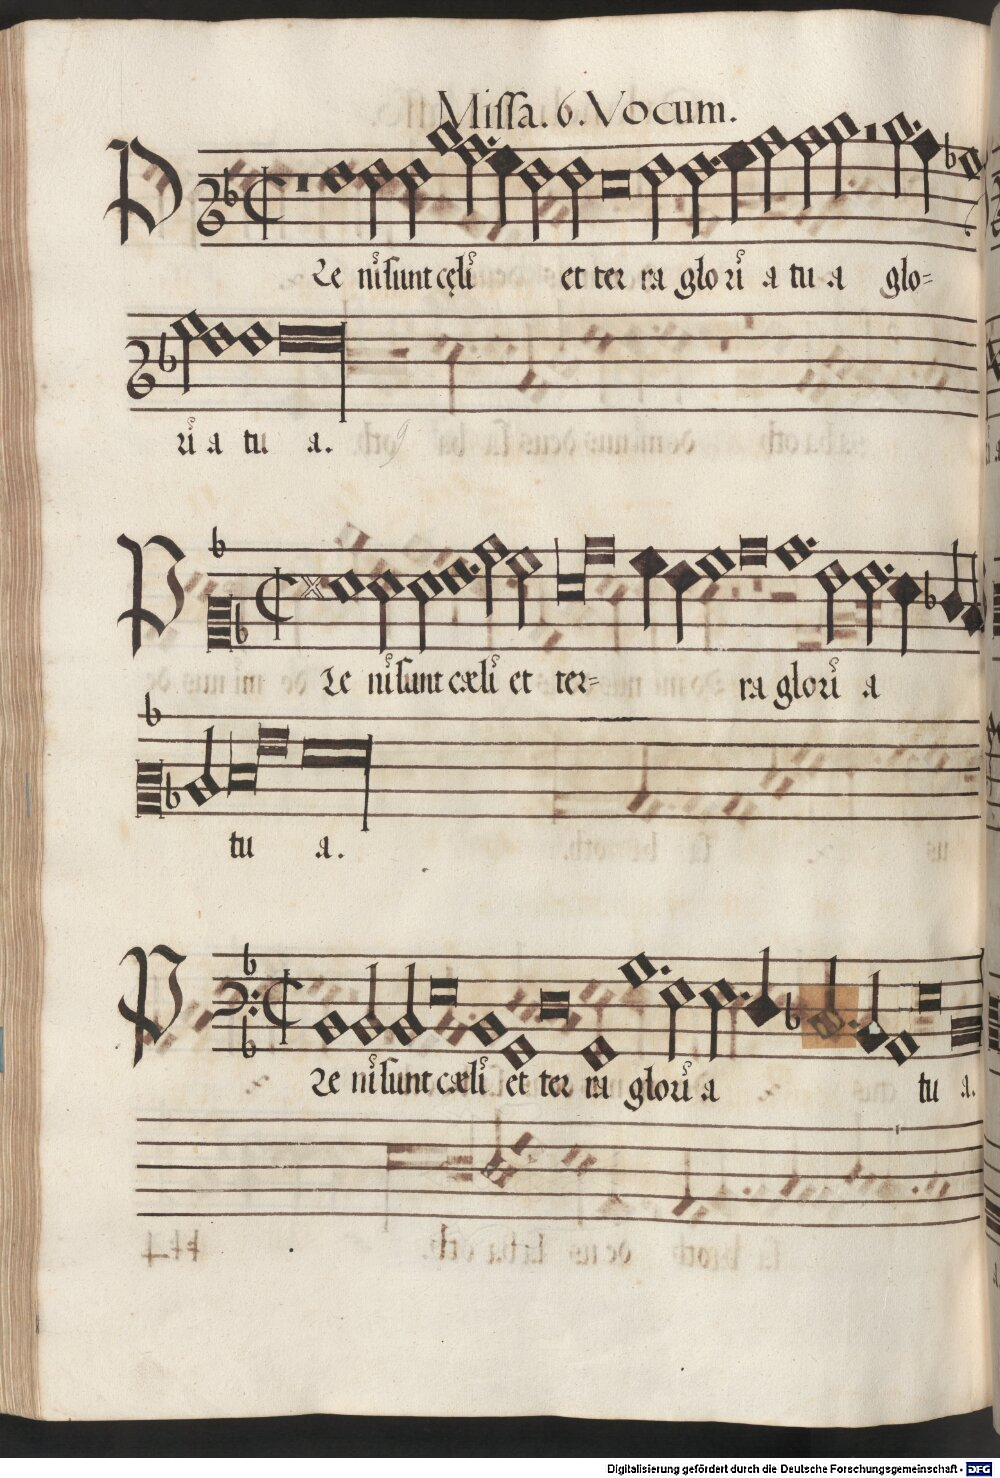 Missa. 6. Vocum.
P
Le ni sunt cęli et ter ra glo ri a tu a glo-
ri a tu a.
P
Le ni sunt cæli et ter- ra glori a
tu a.
P
Le ni sunt cæli et ter ra glori a tu a.
Digitalisierung gefördert durch die Deutsche Forschungsgemeinschaft - DFG